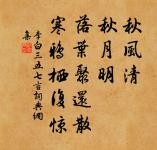 秋風清
秋月明
落葉聚還散
寒鴉栖復惊
李白三五七言詞典網
集